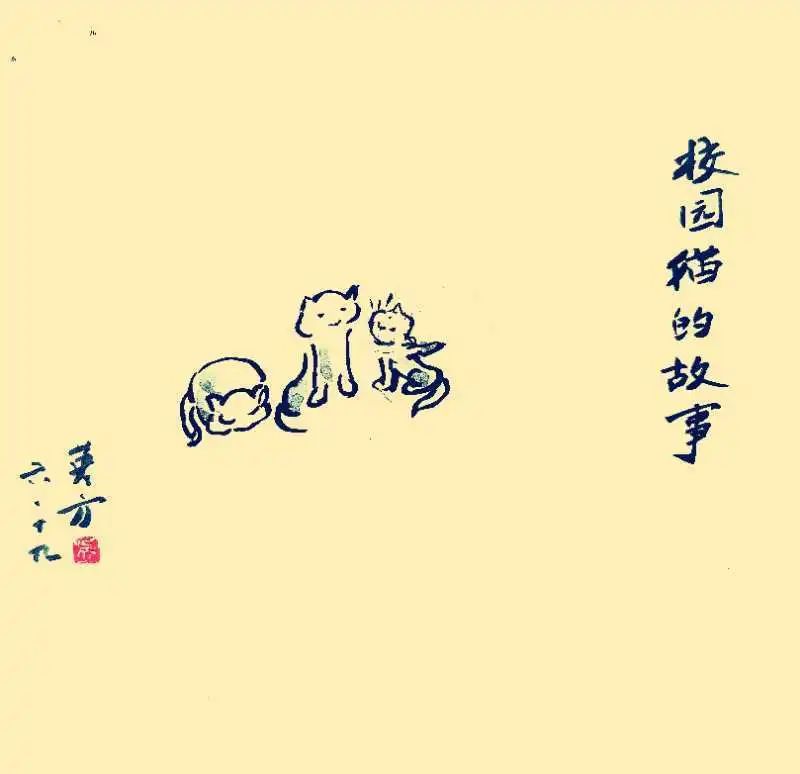 校园猫的故事
六、十九